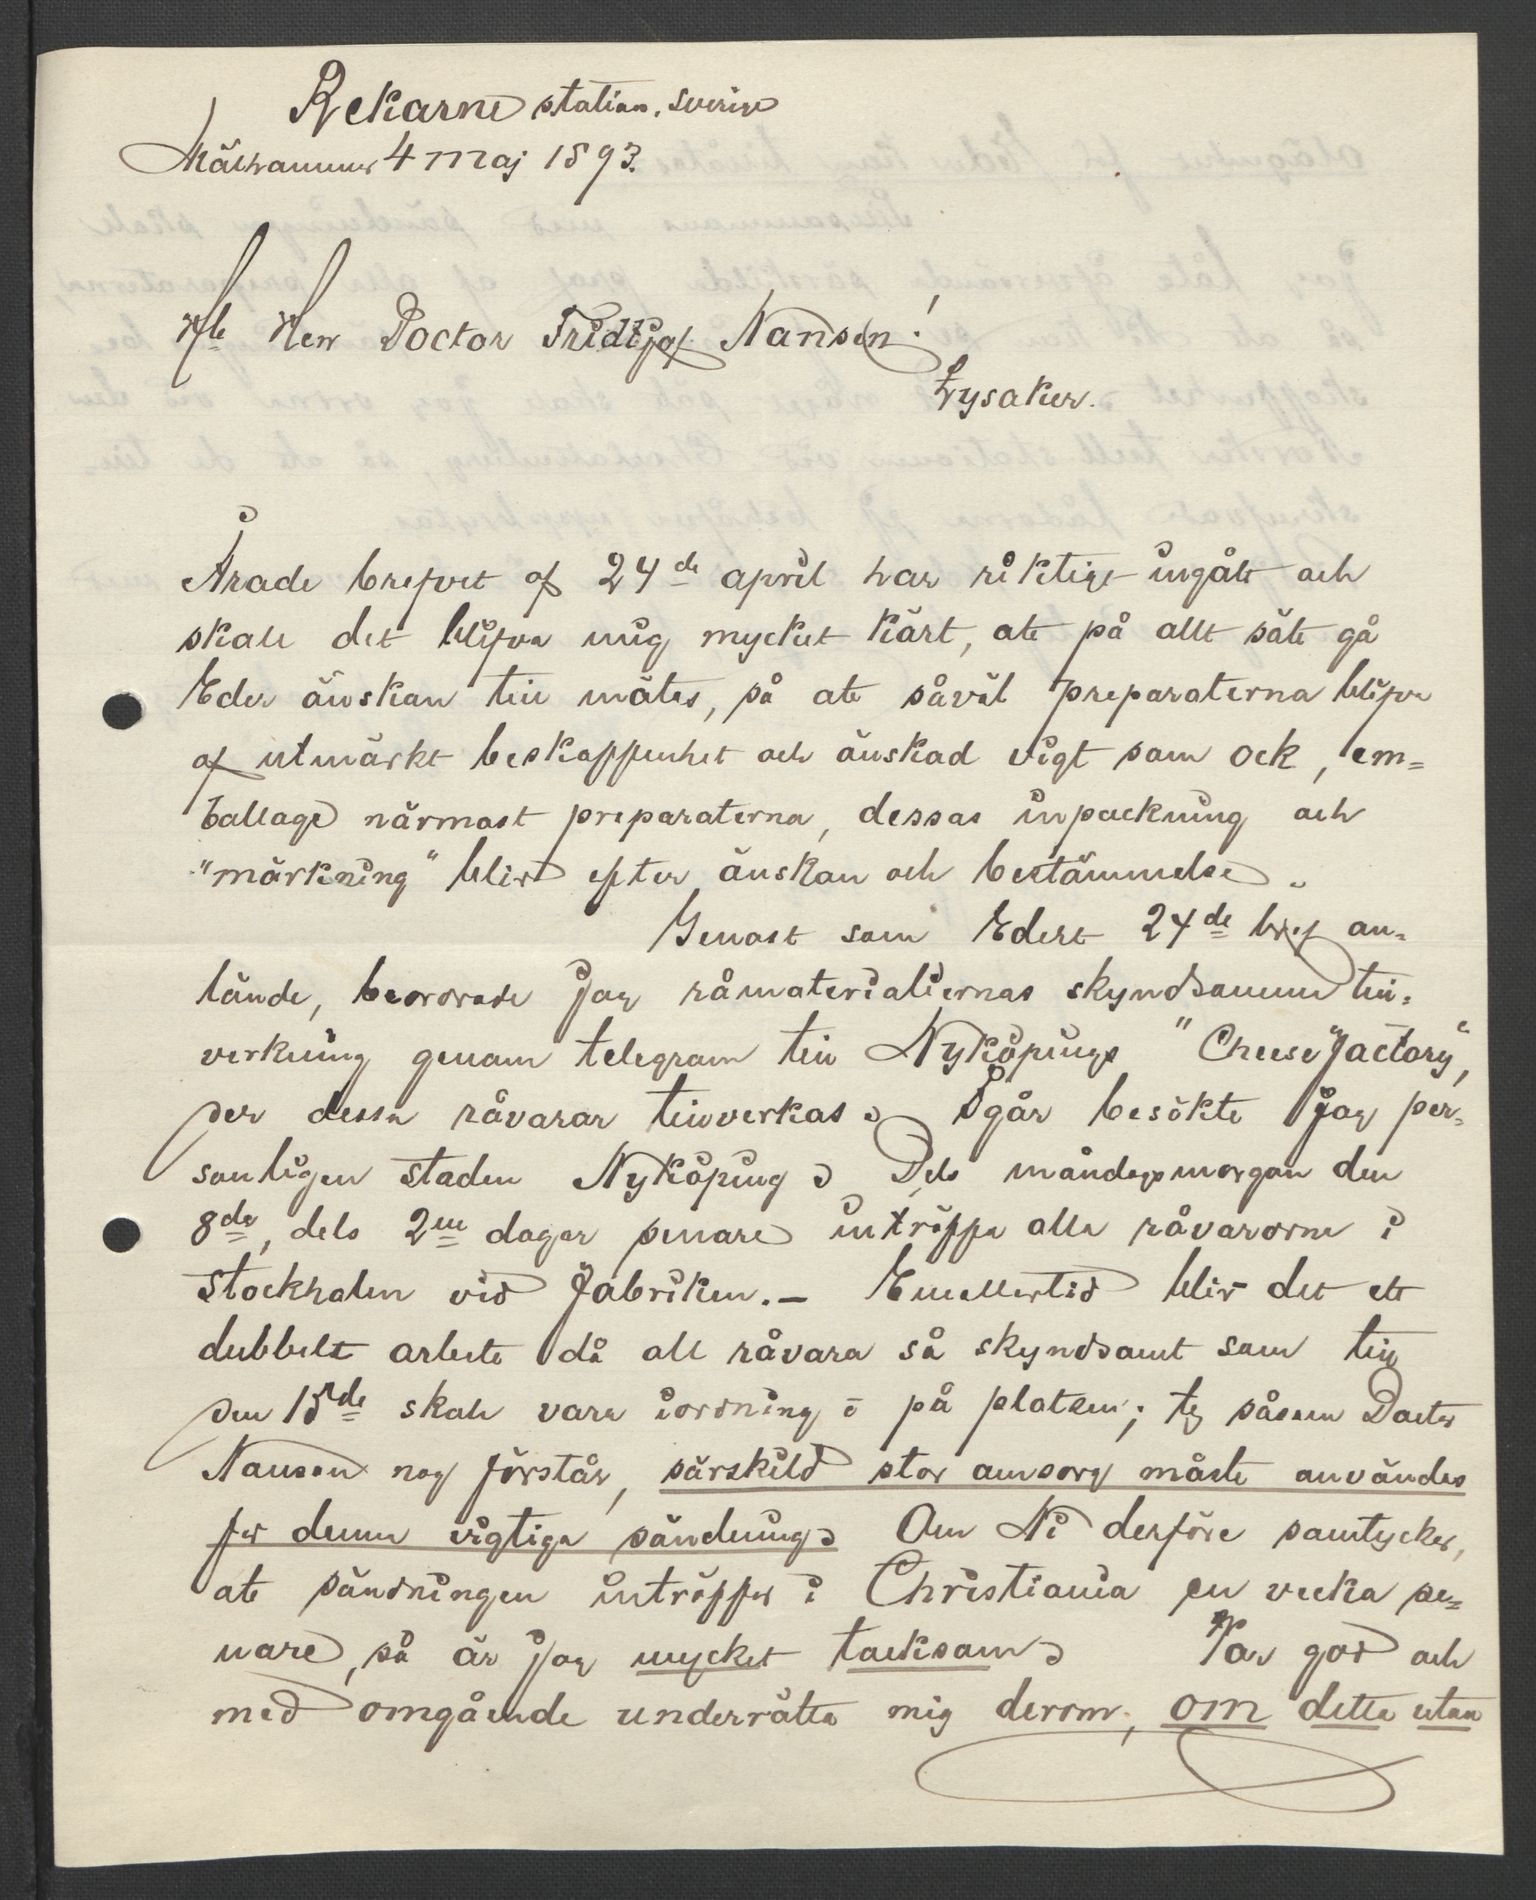 Rekarne station. Sverige
Mälhammar 4 maj 1893.
Herr Doctor Fridtjof Nansen!
Lysaker.
Ärade brefvet af 24de april har riktigt ingått och
skall det blifva mig mycket kärt, att på allt sätt gå
Eder önskan till mötes, så att såväl preparaterna blifva
af utmärkt beskaffenhet och önskad vigt som ock, em=
ballage närmast preparaterna, dessas inpackning och
"märkning" blir efter önskan och bestämmelse.
Genast som Edert 24de bref an=
lände, beordrade jag råmaterialiernas skyndsamma till=
verkning genom telegram till Nyköpings "Cheese factory",
der dessa råvaror tillverkas. Igår besökte jag per=
sonligen staden Nyköping. Dels måndagsmorgon den
8de, dels 2ne dagar senare inträffa alla råvarorna i
Stockholm vid fabriken. — Emellertid blir det ett
dubbelt arbete då all råvara så skyndsamt som till
den 15de skall vara iordning på platsen; ty såsom Doctor
Nansen nog förstår, särskild stor omsorg måste användas
för denna vigtiga sändning. Om Ni derföre samtycker,
att sändningen inträffar i Christiania en vecka se=
nare, så är jag mycket tacksam. Var god och
med omgående underrätta mig derom, om detta utan